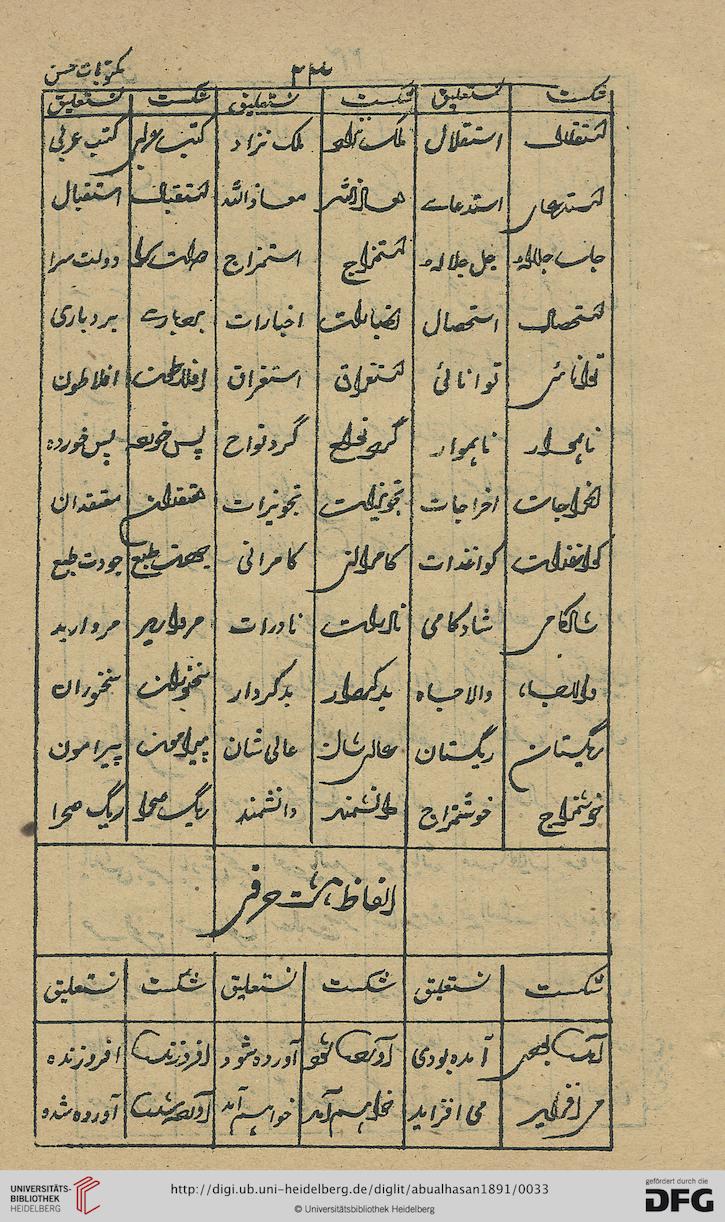 ۲۲۴ مکتوبات حسن
شکست نستعلیق شکست نستعلیق شکست نستعلیق
استقلال استقلال ملک نژاد ملک نژاد کتب عربی کتب عربی
استدعای استدعاے معاذ اللہ معاذ اللہ استقبال استقبال
جل جلالہ جل جلالہ استمزاج استمزاج دولت سرا دولت سرا
استحصال استحصال اخبارات اخبارات بردباری بردباری
توانائی توانائی استغراق استغراق افلاطون افلاطون
ناہموار ناہموار گرد نواح گرد نواح پس خورده پس خورده
اخراجات اخراجات تجویزات تجویزات معتقدان معتقدان
کواغذات کواغذات کامرانی کامرانی جودت طبع جودت طبع
شادکامی شادکامی نادرات نادرات مروارید مروارید
والاجاہ والاجاہ بدکردار بدکردار سخنوران سخنوران
ریگستان ریگستان عالی شان عالی شان پیرامون پیرامون
خوشمزاج خوشمزاج دانشمند دانشمند ریگ صحرا ریگ صحرا
الفاظ ہشت حرفی
شکست نستعلیق شکست نستعلیق شکست نستعلیق
آمده بودی آمده بودی آورده شود آورده شود افروزنده افروزنده
می افزاید می افزاید خواہیم آمد خواہیم آمد آورده شده آورده شده
UNIVERSITÄTS-
BIBLIOTHEK
HEIDELBERG
http://digi.ub.uni-heidelberg.de/diglit/abualhasan1891/0033
© Universitätsbibliothek Heidelberg
gefördert durch die
DFG